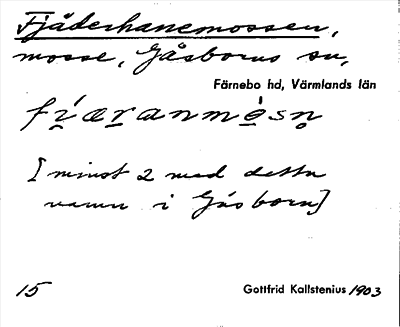 Fjäderhanemossen,
mosse, Gåsborns sn,
Färnebo hd, Värmlands län
[minst 2 med detta
namn i Gåsborn]
15 Gottfrid Kallstenius 1903